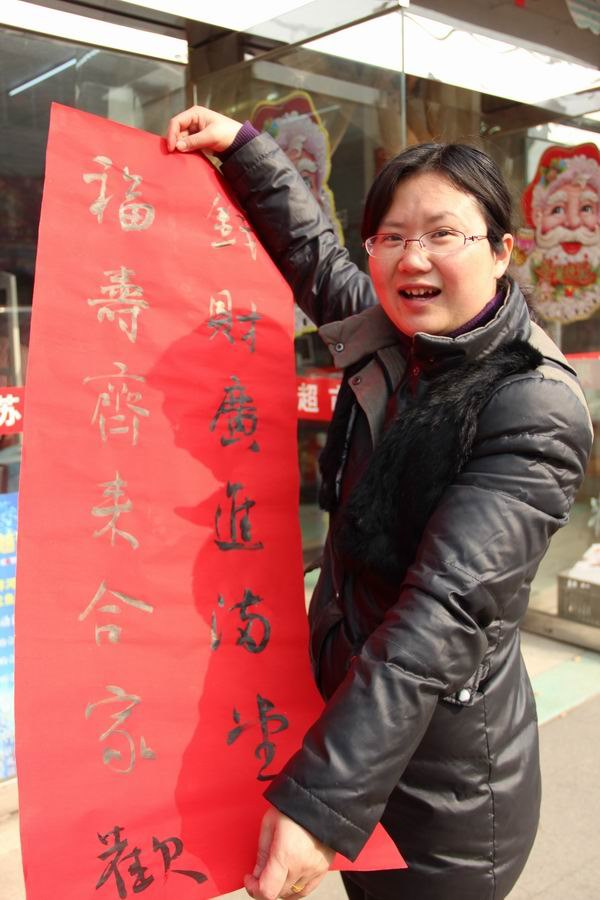 錢財廣進滿堂
福壽齊來合家歡
苏
超市